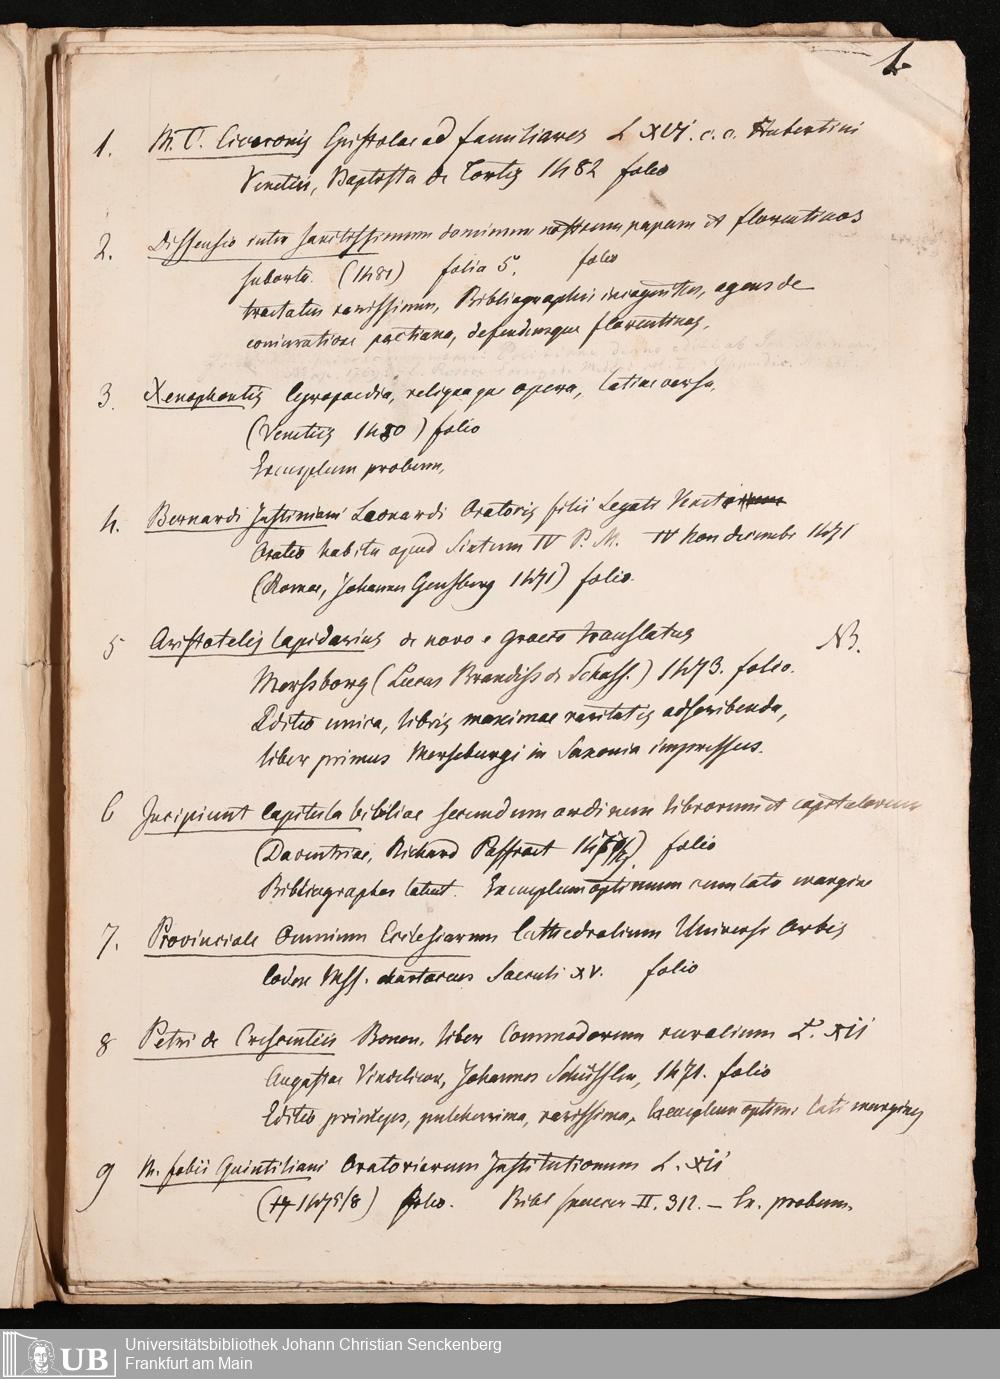 1.
1. M. T. Ciceronis Epistolae ad familiares L XVI. c. c. Hubertini
Venetiis, Baptista de Tortis 1482 folio
2. Dissensio inter sanctissimum dominum nostrum papam et florentinos
suborta. (1481) folia 5. folio
tractatus rarissimus, Bibliographis incognitus, agens de
coniuratione pactiana, defendensque florentinos.
3. Xenophontis Cyropaedia, reliquaque opera, latine versa.
(Venetiis 1480) folio
Exemplum probum.
4. Bernardi Justiniani Leonardi Oratoris filii Legati
Oratio habita apud Sixtum IV P. M. IV Non decembr 1471
(Romae, Johannes Gensberg 1471) folio.
5 Aristotelis lapidarius de novo e graeco translatus NB.
Mersborg (Lucas Brandiss de Schass.) 1473. folio.
Editio unica, libris maximae raritatis adscribenda,
liber primus Merseburgi in Saxonia impressus.
6 Incipiunt capitula bibliae secundum ordinem librorum et capitulorum
(Daventriae, Richard Paffraet) folio
Bibliographos latet. Exemplum optimum cum lato margine
7. Provinciale Omnium Ecclesiarum Cathedralium Universi Orbis
Codex Mss. chartaceus Saeculi XV. folio
8 Petri de Crescentiis Bonon. liber Commodorum ruralium L. XII
Augustae Vindelicor, Johannes Schüssler, 1471. folio
Editio princeps, pulcherrima, rarissima, Exemplum optimi lati marginis
9 M. fabii Quintiliani Oratoriarum Institutionum L. XII
(1475/8) folio. Bibl Spencer II. 312. – Ex. probum.
Universitätsbibliothek Johann Christian Senckenberg
Frankfurt am Main
UB